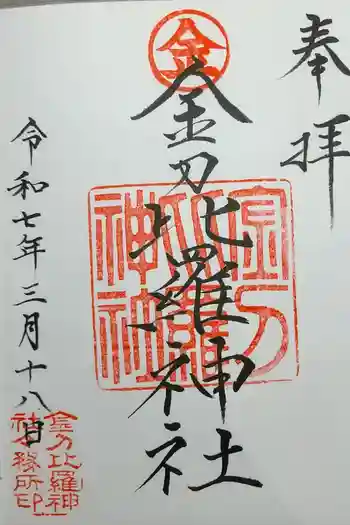 奉拝
金
金刀比羅神社
金刀比羅神社
令和七年三月十八日
金刀比羅神
社務所印